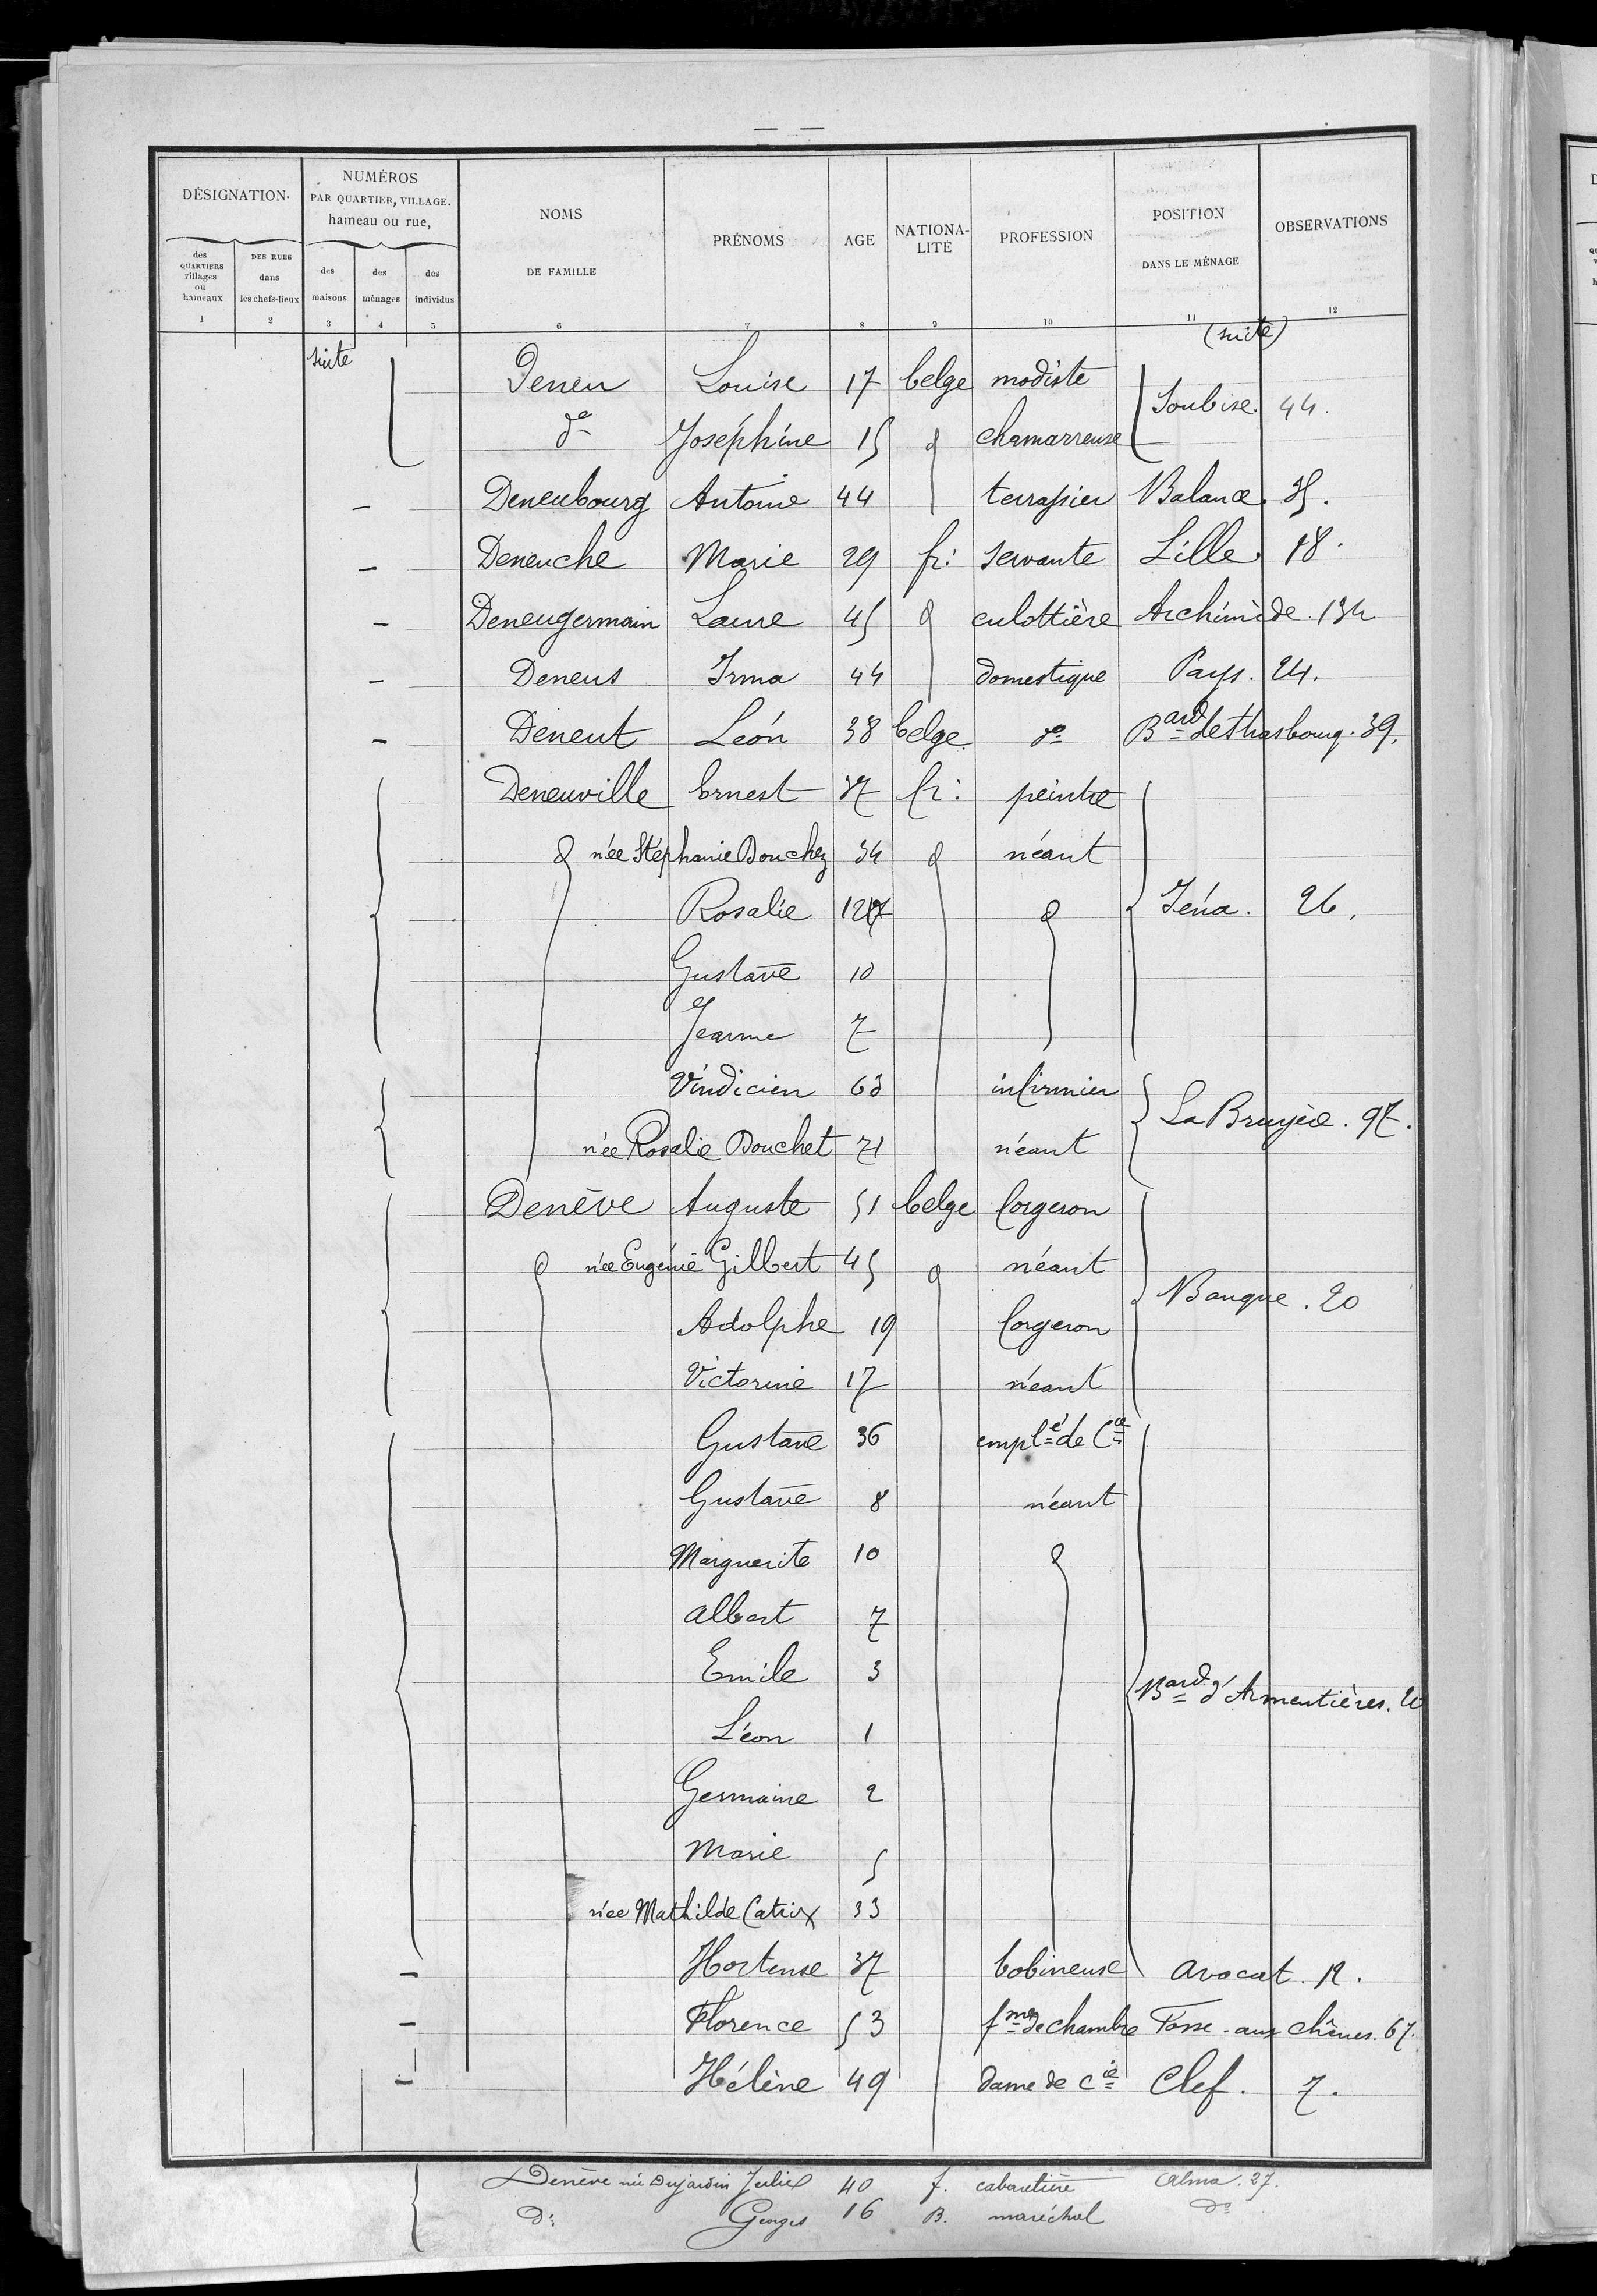 DÉSIGNATION. NUMÉROS PAR QUARTIER, VILLAGE. hameau ou rue, NOMS DE FAMILLE PRÉNOMS AGE NATIONA-LITÉ PROFESSION POSITION DANS LE MÉNAGE OBSERVATIONS
des QUARTIERS villages ou hameaux DES RUES dans les chefs-lieux des maisons des ménages des individus
1 2 3 4 5 6 7 8 9 10 11 12
suite (suite)
Deneu Louise 17 belge modiste
Soubise. 44.
do Joséphine 15 chamarreuse
Deneubourg Antoine 44 terrassier Balance. 35.
Deneuche Marie 29 fr: servante Lille. 18.
Deneugermain Laure 45 culottière Archimède. 134
Deneus Irma 44 domestique Pays. 24.
Deneut Léon 38 belge do Bard de Strasbourg. 39.
Deneuville Ernest 37 fr: peintre
née Stéphanie Douchez 34 néant
Rosalie 12 Iéna. 26.
Gustave 10
Jeanne 7
Vindicien 63 infirmier
La Bruyère. 97.
née Rosalie Douchet 71 néant
Denève Auguste 51 belge forgeron
née Eugénie Gilbert 45 néant
Banque. 20
Adolphe 19 forgeron
Victorine 17 néant
Gustave 36 emplé de Cce
Gustave 8 néant
Marguerite 10
Albert 7
Emile 3
Bard d'Armentières. 20
Léon 1
Germaine 2
Marie 5
née Mathilde Catrix 33
Hortense 37 bobineuse Avocat. 12.
Florence 53 fme de chambre Fosse-aux chênes. 67.
Hélène 49 dame de Cie Clef. 7.
Denève née Dujardin Julie 40 f. cabaretière Alma. 27.
Do Georges 16 B. maréchal Do